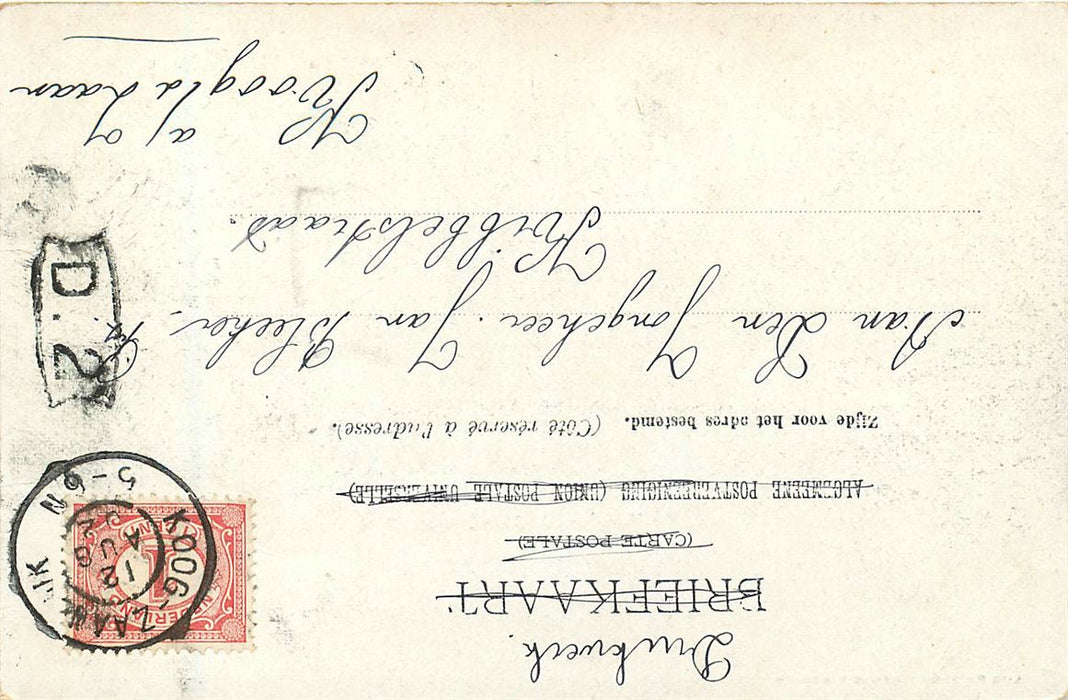 Drukwerk
BRIEFKAART
(CARTE POSTALE)
ALGEMEENE POSTVEREENIGING (UNION POSTALE UNIVERSELLE)
Zijde voor het adres bestemd. (Côté réservé à l'adresse).
Aan den Jongeheer Jan Bleeker.
Kribbelstraat.
K a/ Z
Koog a/d Zaan
KOOG-ZAANDIJK
12 AUG
5-6 N
NEDERLAND
1
CENT
D. 2